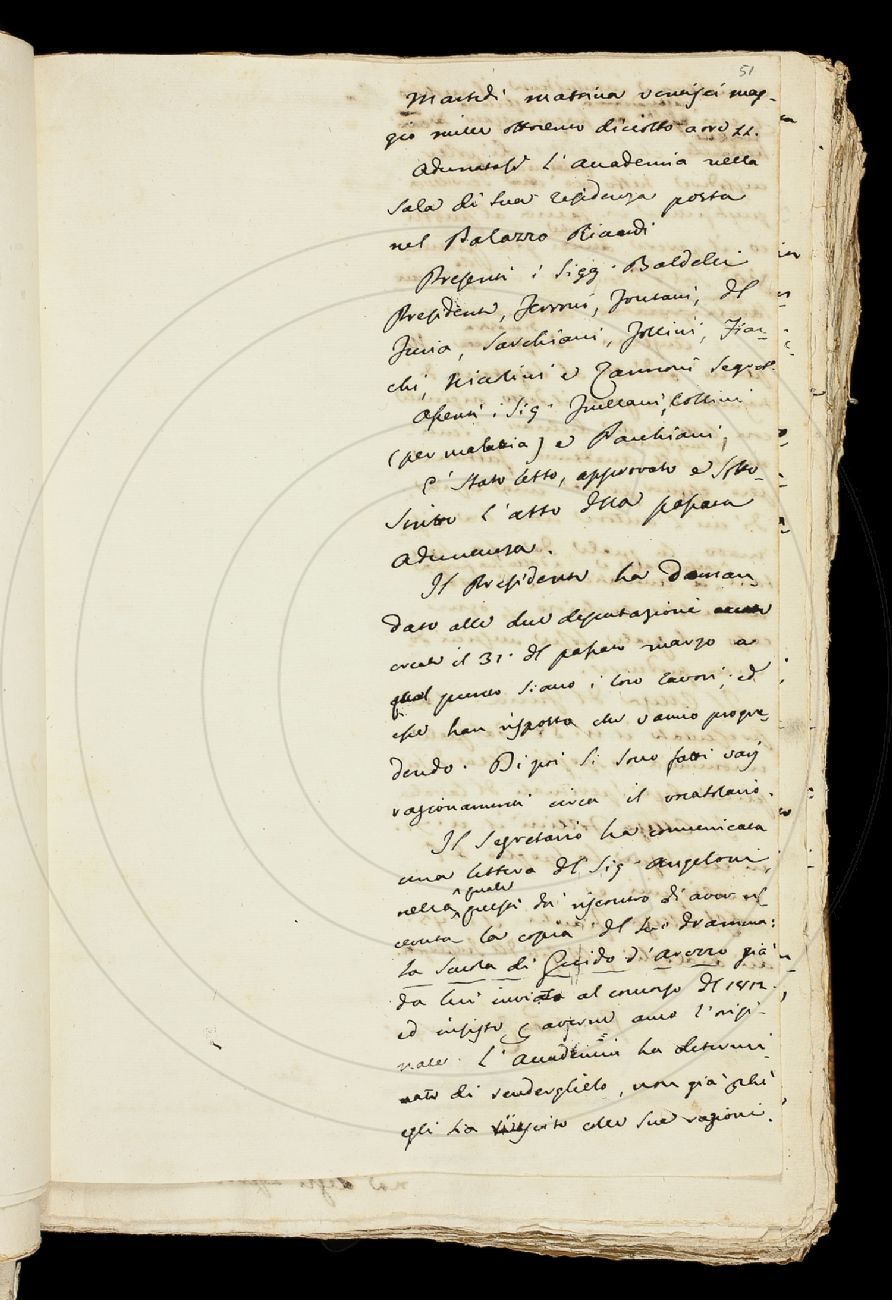 51
Martedì mattina ventisei mag-
gio mille ottocento diciotto a ore 11.
Adunatasi l'Accademia nella
Sala di sua residenza posta
nel Palazzo Riccardi
Presenti i Sigg. Baldelli
Presidente, Ferroni, Fontani, del
Furia, Sarchiani, Follini, Fiac-
chi, Niccolini e Zannoni Segret.
Assenti i Sig. Frullani, Collini
(per malattia) e Pacchiani,
E' stato letto, approvato e sotto-
scritto l'atto della passata
adunanza.
Il Presidente ha doman
dato alle due deputazioni
create il 31. del passato marzo a
qual punto siano i loro lavori; ed
esse han risposto che vanno progre-
dendo. Di poi si sono fatti varj
ragionamenti circa il vocabolario.
Il Segretario ha comunicata
una lettera del Sig. Angeloni,
nella quale questi dà riscontro di aver ri-
cevuta la copia del suo dramma:
la Scuola di Guido d'Arezzo già
da lui inviato al concorso del 1812.
ed insiste p averne anco l'origi-
nale. L'Accademia ha determi-
nato di renderglielo, non già pchè
egli ha colle sue ragioni.